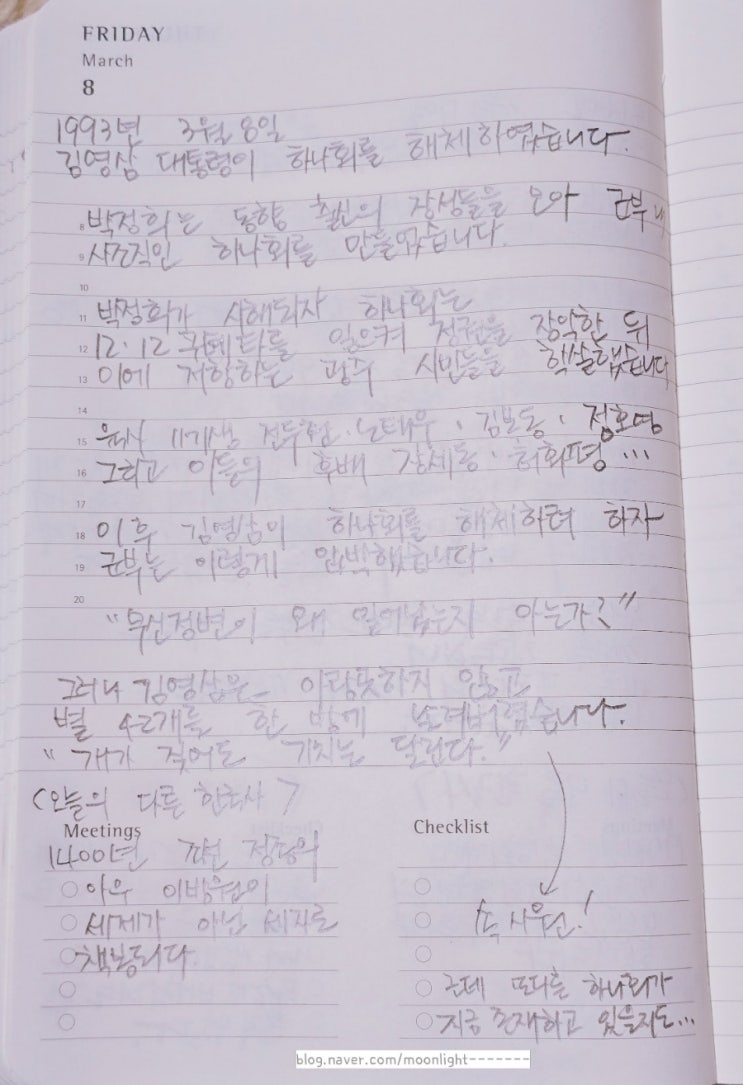 FRIDAY
March
8
1993년 3월 8일
김영삼 대통령이 하나회를 해체하였습니다.
8 박정희는 동향 출신의 장성들을 모아 군부 내
9 사조직인 하나회를 만들었습니다.
10
11 박정희가 시해되자 하나회는
12 12·12 쿠데타를 일으켜 정권을 장악한 뒤
13 이에 저항하는 광주 시민들을 학살했습니다
14
15 육사 11기생 전두환·노태우·김복동·정호영
16 그리고 이들의 후배 장세동·허화평...
17
18 이후 김영삼이 하나회를 해체하려 하자
19 군부는 이렇게 압박했습니다.
20
"무신정변이 왜 일어났는지 아는가?"
그러나 김영삼은 아랑곳하지 않고
별 42개를 한 방에 날려버렸습니다.
"개가 짖어도 기차는 달린다."
<오늘의 다른 한국사>
Meetings
Checklist
1400년 조선 정종의
아우 이방원이
세제가 아닌 세자로
책봉되다.
속 시원!
근데 또다른 하나회가
지금 존재하고 있을지도...
blog.naver.com/moonlight-------